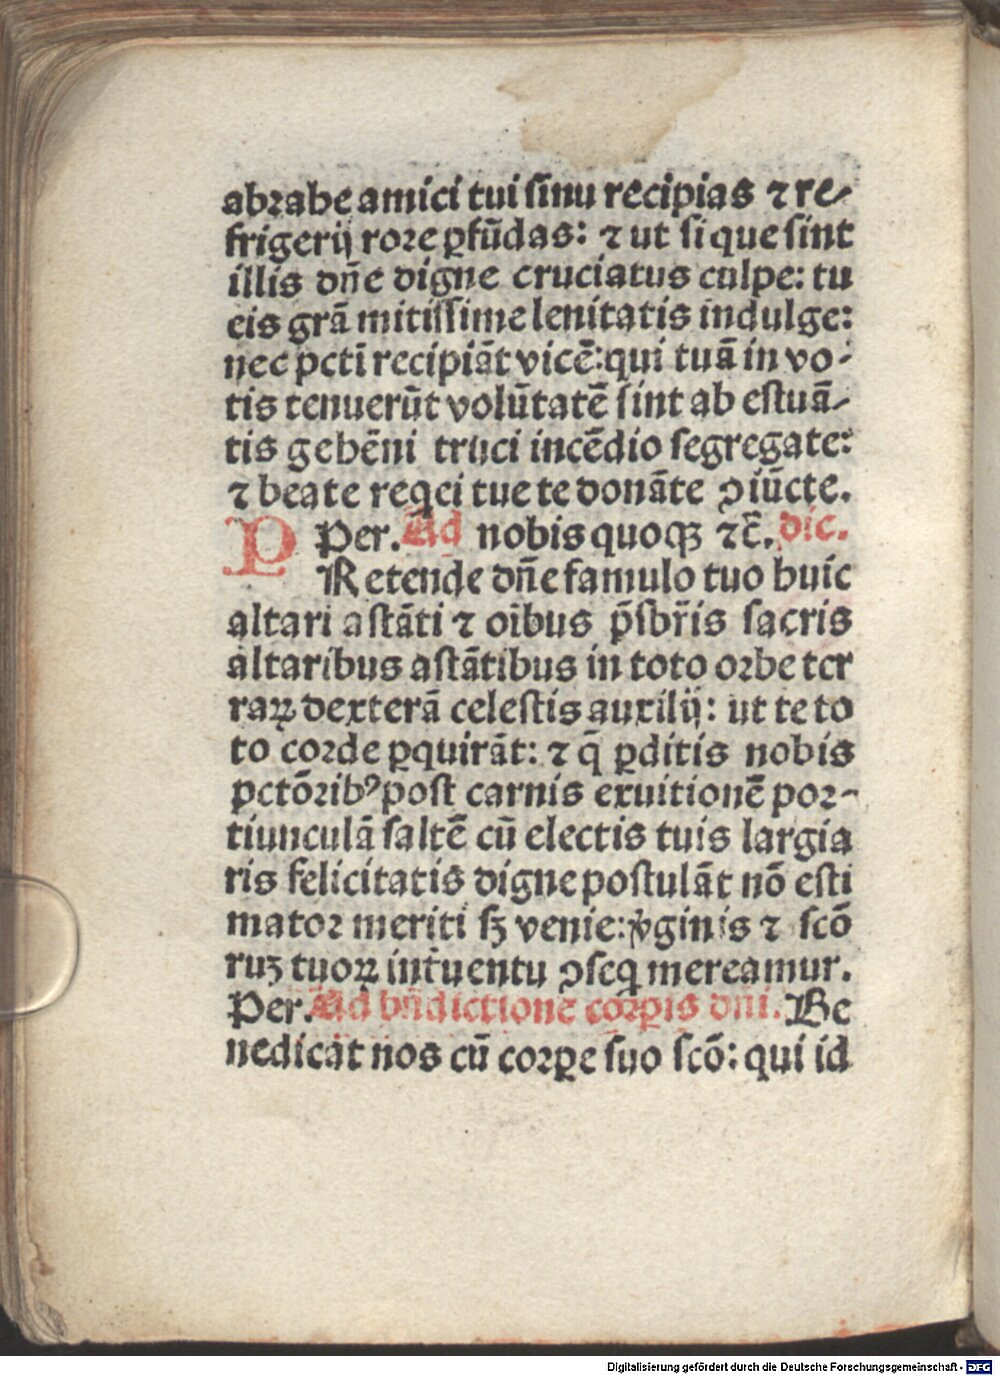 abrahe amici tui sinu recipias ⁊ re⸗
frigerij rore ꝑfũdas: ⁊ ut si que sint
illis dñe digne cruciatus culpe: tu
eis grã mitissime lenitatis indulge:
nec pctĩ recipiãt vicẽ: qui tuã in vo⸗
tis tenuerũt volũtatẽ sint ab estuã⸗
tis gehẽni truci incẽdio segregate:
⁊ beate reqei tue te donãte ꝯiũcte.
Per. Ad nobis quoqꝫ ⁊c̃. dic.
PRetende dñe famulo tuo huic
altari astãti ⁊ oĩbus p̃sbr̃is sacris
altaribus astãtibus in toto orbe ter
raꝝ dexterã celestis auxilij: ut te to
to corde ꝑquirãt: ⁊ q̃ ꝑditis nobis
pctõribꝰ post carnis exuitionẽ por⸗
tiunculã saltẽ cũ electis tuis largia
ris felicitatis digne postulãt nõ esti
mator meriti sꝫ venie: v̓ginis ⁊ scõ
ruꝫ tuoꝝ int̃uentu ꝯseq mereamur.
Per. Ad bñdictione corꝑis dni. Be
nedicat nos cũ corꝑe suo scõ: qui id
Digitalisierung gefördert durch die Deutsche Forschungsgemeinschaft - DFG